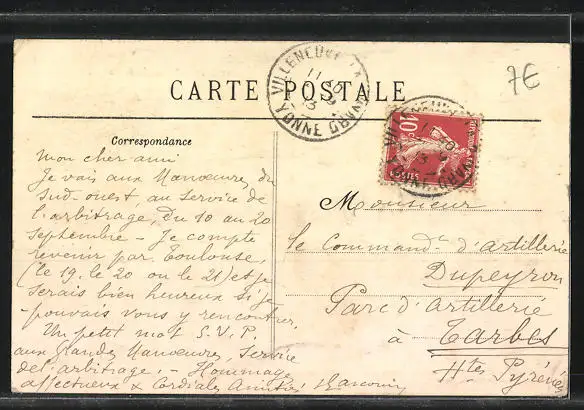 CARTE POSTALE
7€
VILLENEUVE
YONNE
10c
Correspondance
Mon cher ami
Je vais aux Manœuvres du
Sud-ouest, au service de
l'arbitrage, du 10 au 20
Septembre - Je compte
revenir par Toulouse,
(le 19, le 20 ou le 21) et je
serais bien heureux si je
pouvais vous y rencontrer.
Un petit mot S.V.P.
aux Grandes Manœuvres, Service
de l'arbitrage. - Hommage
affectueux & Cordiales Amitiés
Monsieur
le Commandt d'Artillerie
Dupeyron
Parc d'Artillerie
à Tarbes
Htes Pyrénées